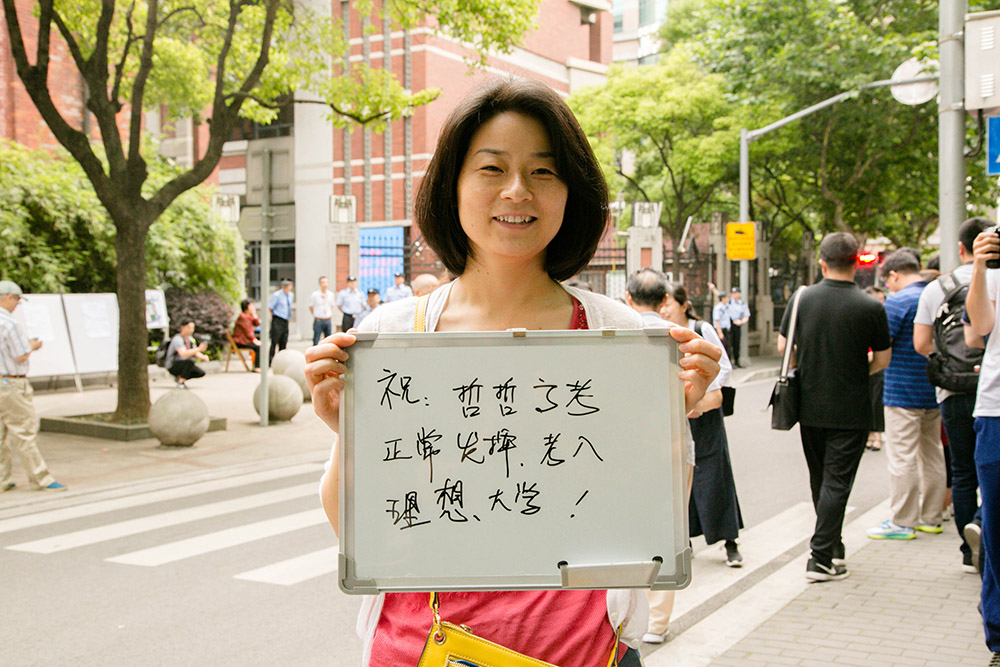 祝：哲哲高考
正常发挥、考入
理想、大学！